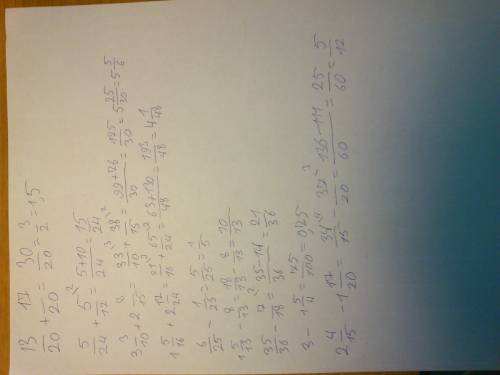 13/20 + 17/20 = 30/20 = 3/2 = 1,5
5/24 + 5/12 ² = 5+10/24 = 15/24
3 3/10 + 2 8/15 = 33/10 ³ + 38/15 ² = 99+76/30 = 175/30 = 5 25/30 = 5 5/6
1 5/16 + 2 17/24 = 21/16 ³ + 65/24 ² = 63+130/48 = 193/48 = 4 1/48
6/25 - 1/25 = 5/25 = 1/5
1 5/13 - 8/13 = 18/13 - 8/13 = 10/13
35/36 - 7/18 ² = 35-14/36 = 21/36
2 4/15 - 1 17/20 = 34/15 ⁴ - 37/20 ³ = 136-111/60 = 25/60 = 5/12